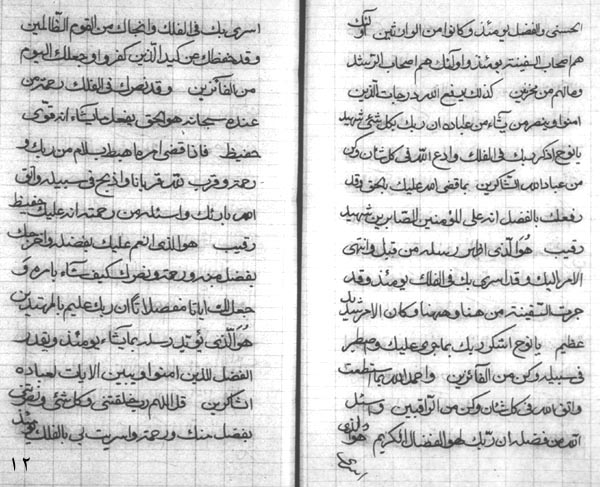 الحسنى والفضل يومئذ وكانوا من الوارثين أولئك
هم اصحاب السفينة يومئذ واولئك هم اصحاب الرشد
ومالهم من محزنين كذلك يرفع الله درجات الذين
امنوا وينصر من يشاء من عباده ان ربك بكل شئ شهيد
يا نوح اذكر ربك في الفلك وادع الله في كل شان وكن
من عباد الله الشاكرين بما قضى الله عليك بالحق وقد
رفعك بالفضل انه على المؤمنين الصابرين شهيد
رقيب هو الذي رسله من قبل وانتهى
الامر اليك وقد اسرى بك في الفلك يومئذ وقد
جرت السفينة من هنا وههنا وكان الامر
عظيم يا نوح اشكر ربك بما جرى عليك واصطبر
في سبيله وكن من الفائزين واحمد الله بما استطعت
واتق الله في كل شان وكن من الراقبين واسئل
الله من فضله ان ربك لهو الفضال الكريم هو الذي
اسرى
اسرى بك في الفلك وانجاك من القوم الظالمين
وقد حفظك من كيد الذين كفروا وجعلك اليوم
من الفائزين وقد نصرك في الفلك رحمة من
عنده سبحانه هو الحق يفعل ما يشاء انه قوي
حفيظ فاذا قضى امره اهبط بسلام من ربك و
رحمة وقرب لله قربانا واذبح في سبيله واتق
الله بارئك واسئله من رحمته انه عليك حفيظ
رقيب هو الذي انعم عليك بفضله واخرجك
بفضل منه ورحمة ونصرك كيف شاء بامره و
جعل لك اياتا مفصلات ان ربك عليم بالمهتدين
هو الذي يؤيد رسله بما يشاء يومئذ ويقدر
الفضل للذين امنوا ويبين الايات لعباده
الشاكرين قل اللهم رب خلقتني وكل شئ ونصرتني
بفضل منك ورحمة واسريت بي بالفلك يومئذ
١٢